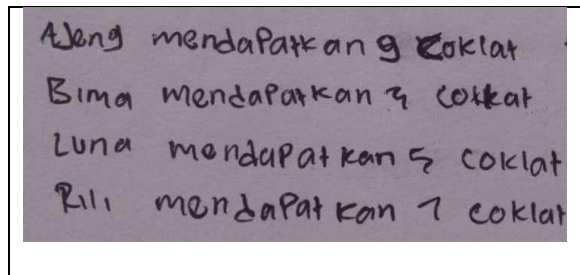 Ajeng mendapatkan 9 coklat
Bima mendapatkan 3 cokkat
Luna mendapatkan 5 coklat
Rili mendapatkan 7 coklat